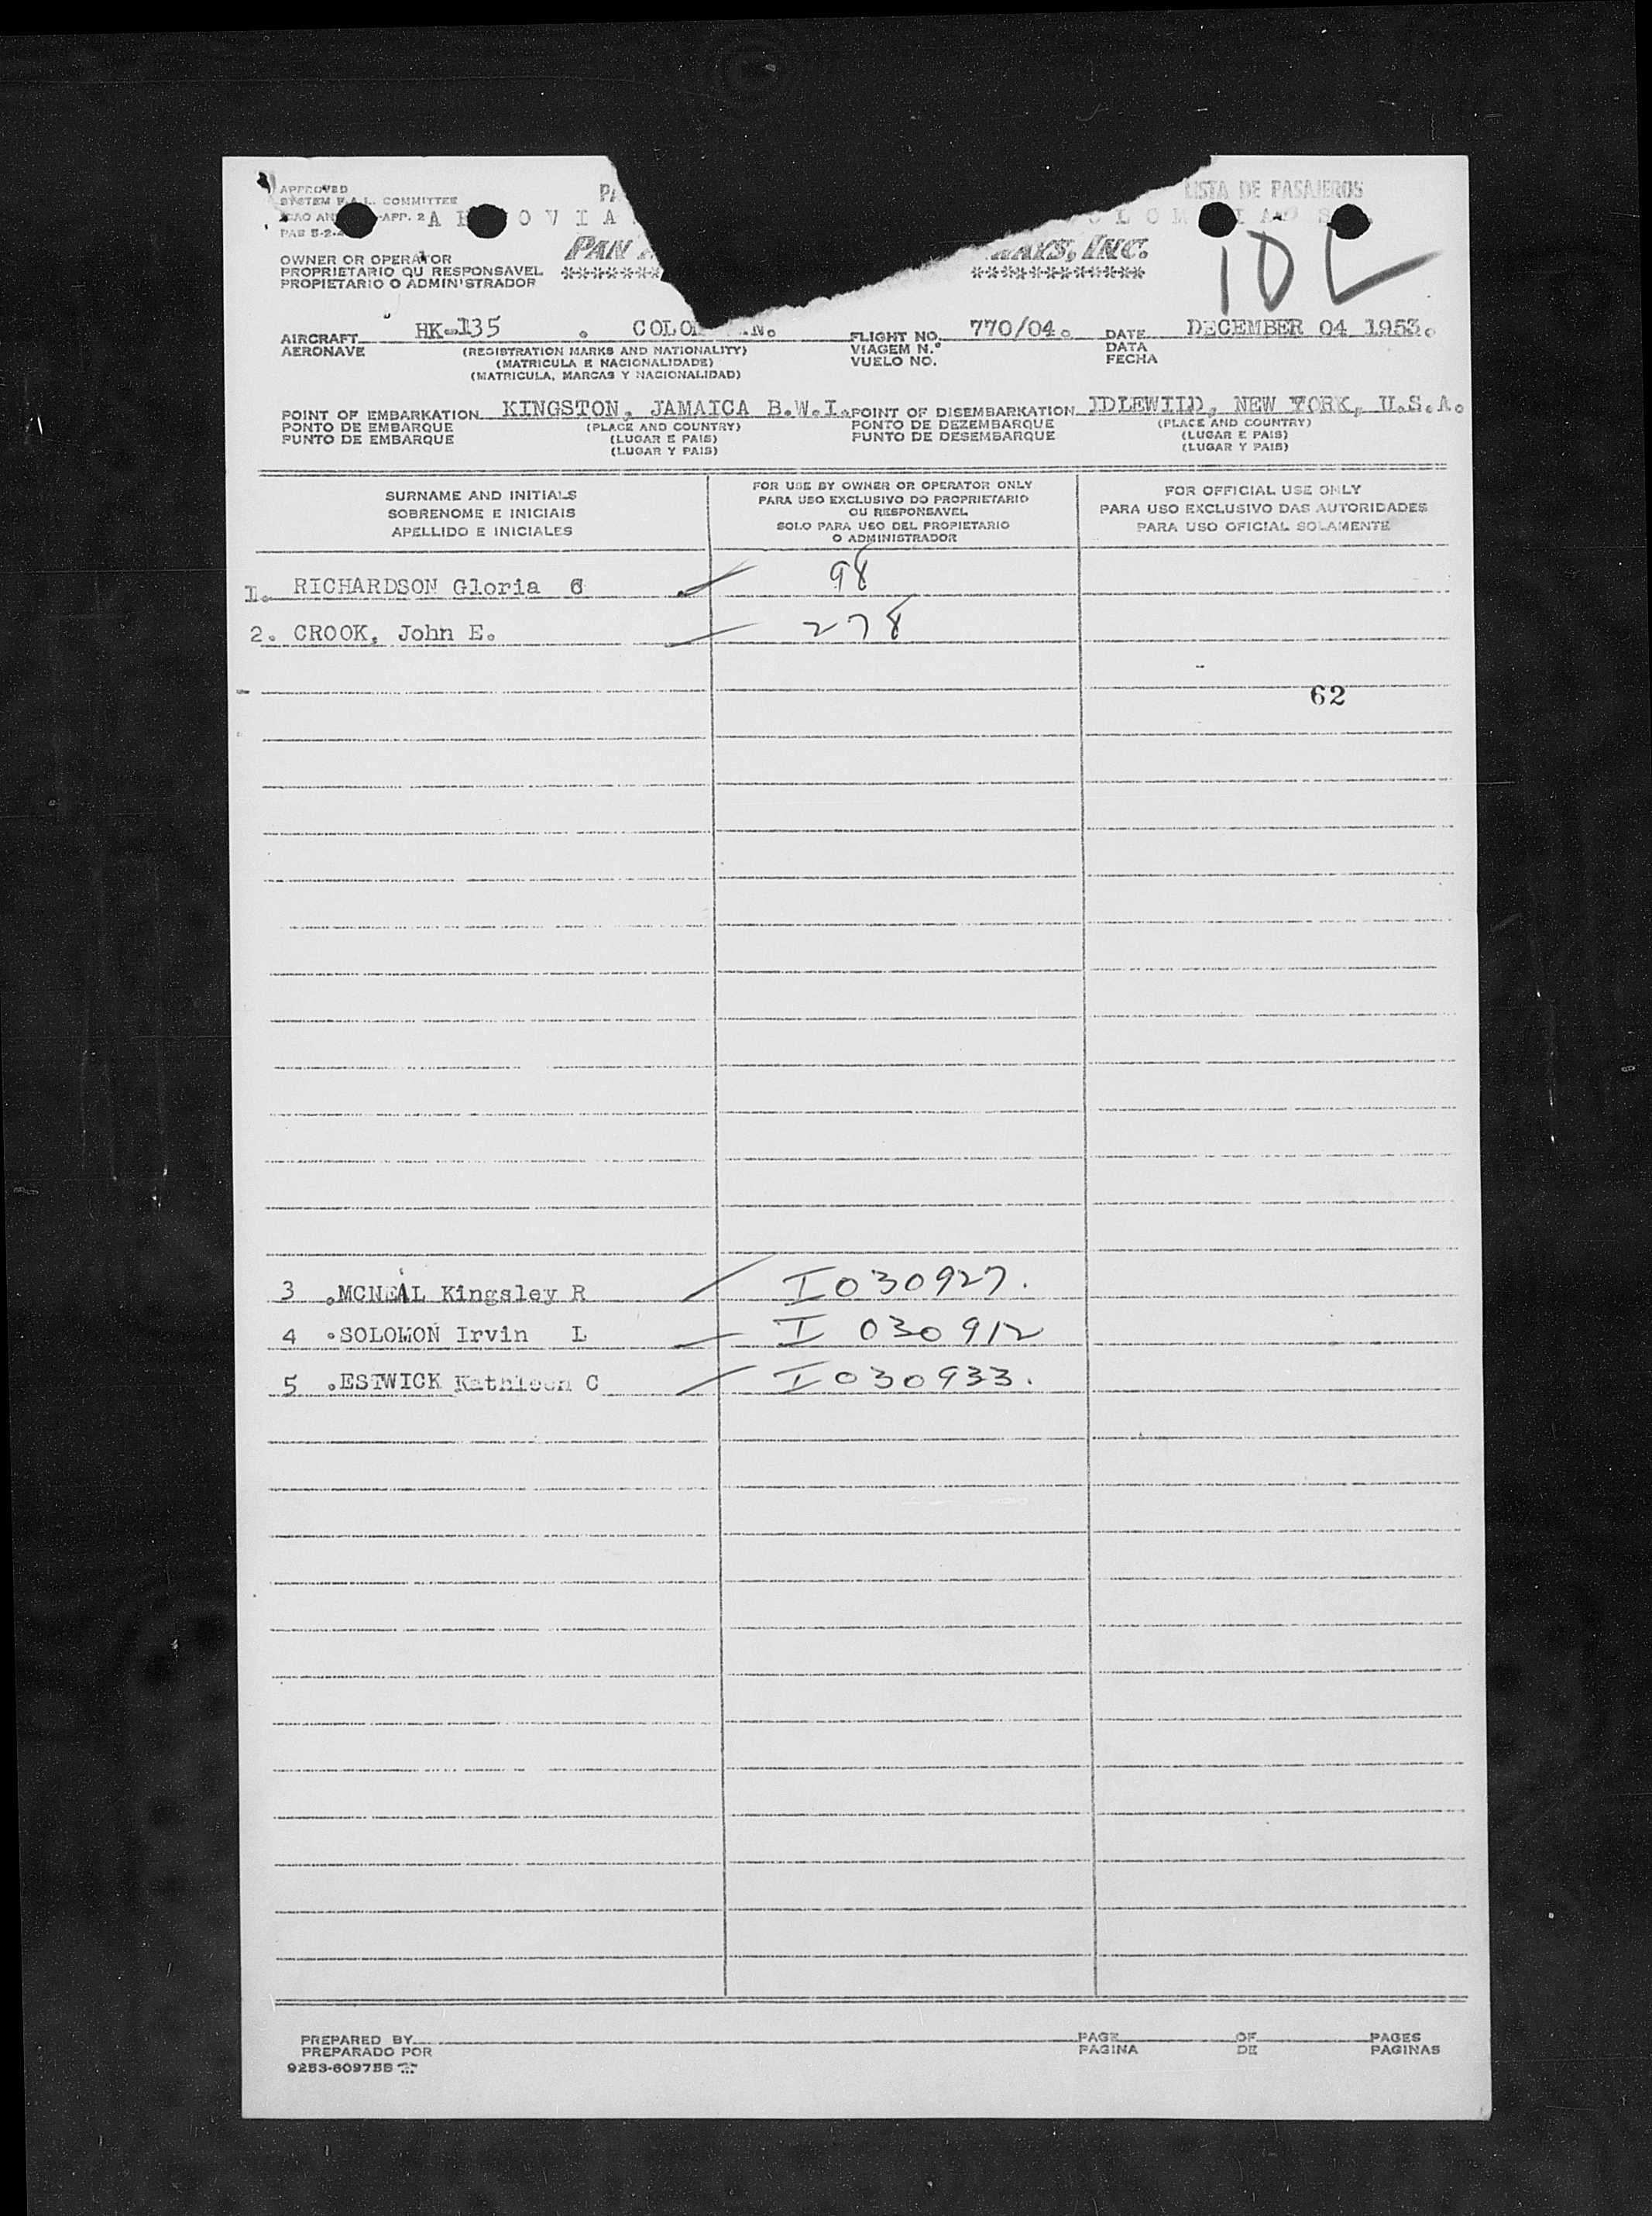 APPROVED
LISTA DE PASAJEROS
SYSTEM F.A.L. COMMITTEE
APP. 2
PAN
INC.
10L
OWNER OR OPERATOR
PROPRIETARIO OU RESPONSAVEL
PROPIETARIO O ADMINISTRADOR
AIRCRAFT HK-135 . FLIGHT NO. 770/04. DATE DECEMBER 04 1953.
AERONAVE (REGISTRATION MARKS AND NATIONALITY) VIAGEM N.º DATA
(MATRICULA E NACIONALIDADE) VUELO NO. FECHA
(MATRICULA, MARCAS Y NACIONALIDAD)
POINT OF EMBARKATION KINGSTON. JAMAICA B.W.I. POINT OF DISEMBARKATION IDLEWILD, NEW YORK, U.S.A.
PONTO DE EMBARQUE (PLACE AND COUNTRY) PONTO DE DEZEMBARQUE (PLACE AND COUNTRY)
PUNTO DE EMBARQUE (LUGAR E PAIS) PUNTO DE DESEMBARQUE (LUGAR E PAIS)
(LUGAR Y PAIS) (LUGAR Y PAIS)
SURNAME AND INITIALS
SOBRENOME E INICIAIS
APELLIDO E INICIALES
FOR USE BY OWNER OR OPERATOR ONLY
PARA USO EXCLUSIVO DO PROPRIETARIO
OU RESPONSAVEL
SOLO PARA USO DEL PROPIETARIO
O ADMINISTRADOR
FOR OFFICIAL USE ONLY
PARA USO EXCLUSIVO DAS AUTORIDADES
PARA USO OFICIAL SOLAMENTE
1. RICHARDSON Gloria 98
2. CROOK, John E. 278
62
3 .MCNEAL Kingsley R I030927.
4 .SOLOMON Irvin L I 030912
5 .ESTWICK Kathleen C I030933.
PREPARED BY PAGE OF PAGES
PREPARADO POR PAGINA DE PAGINAS
9253-609755